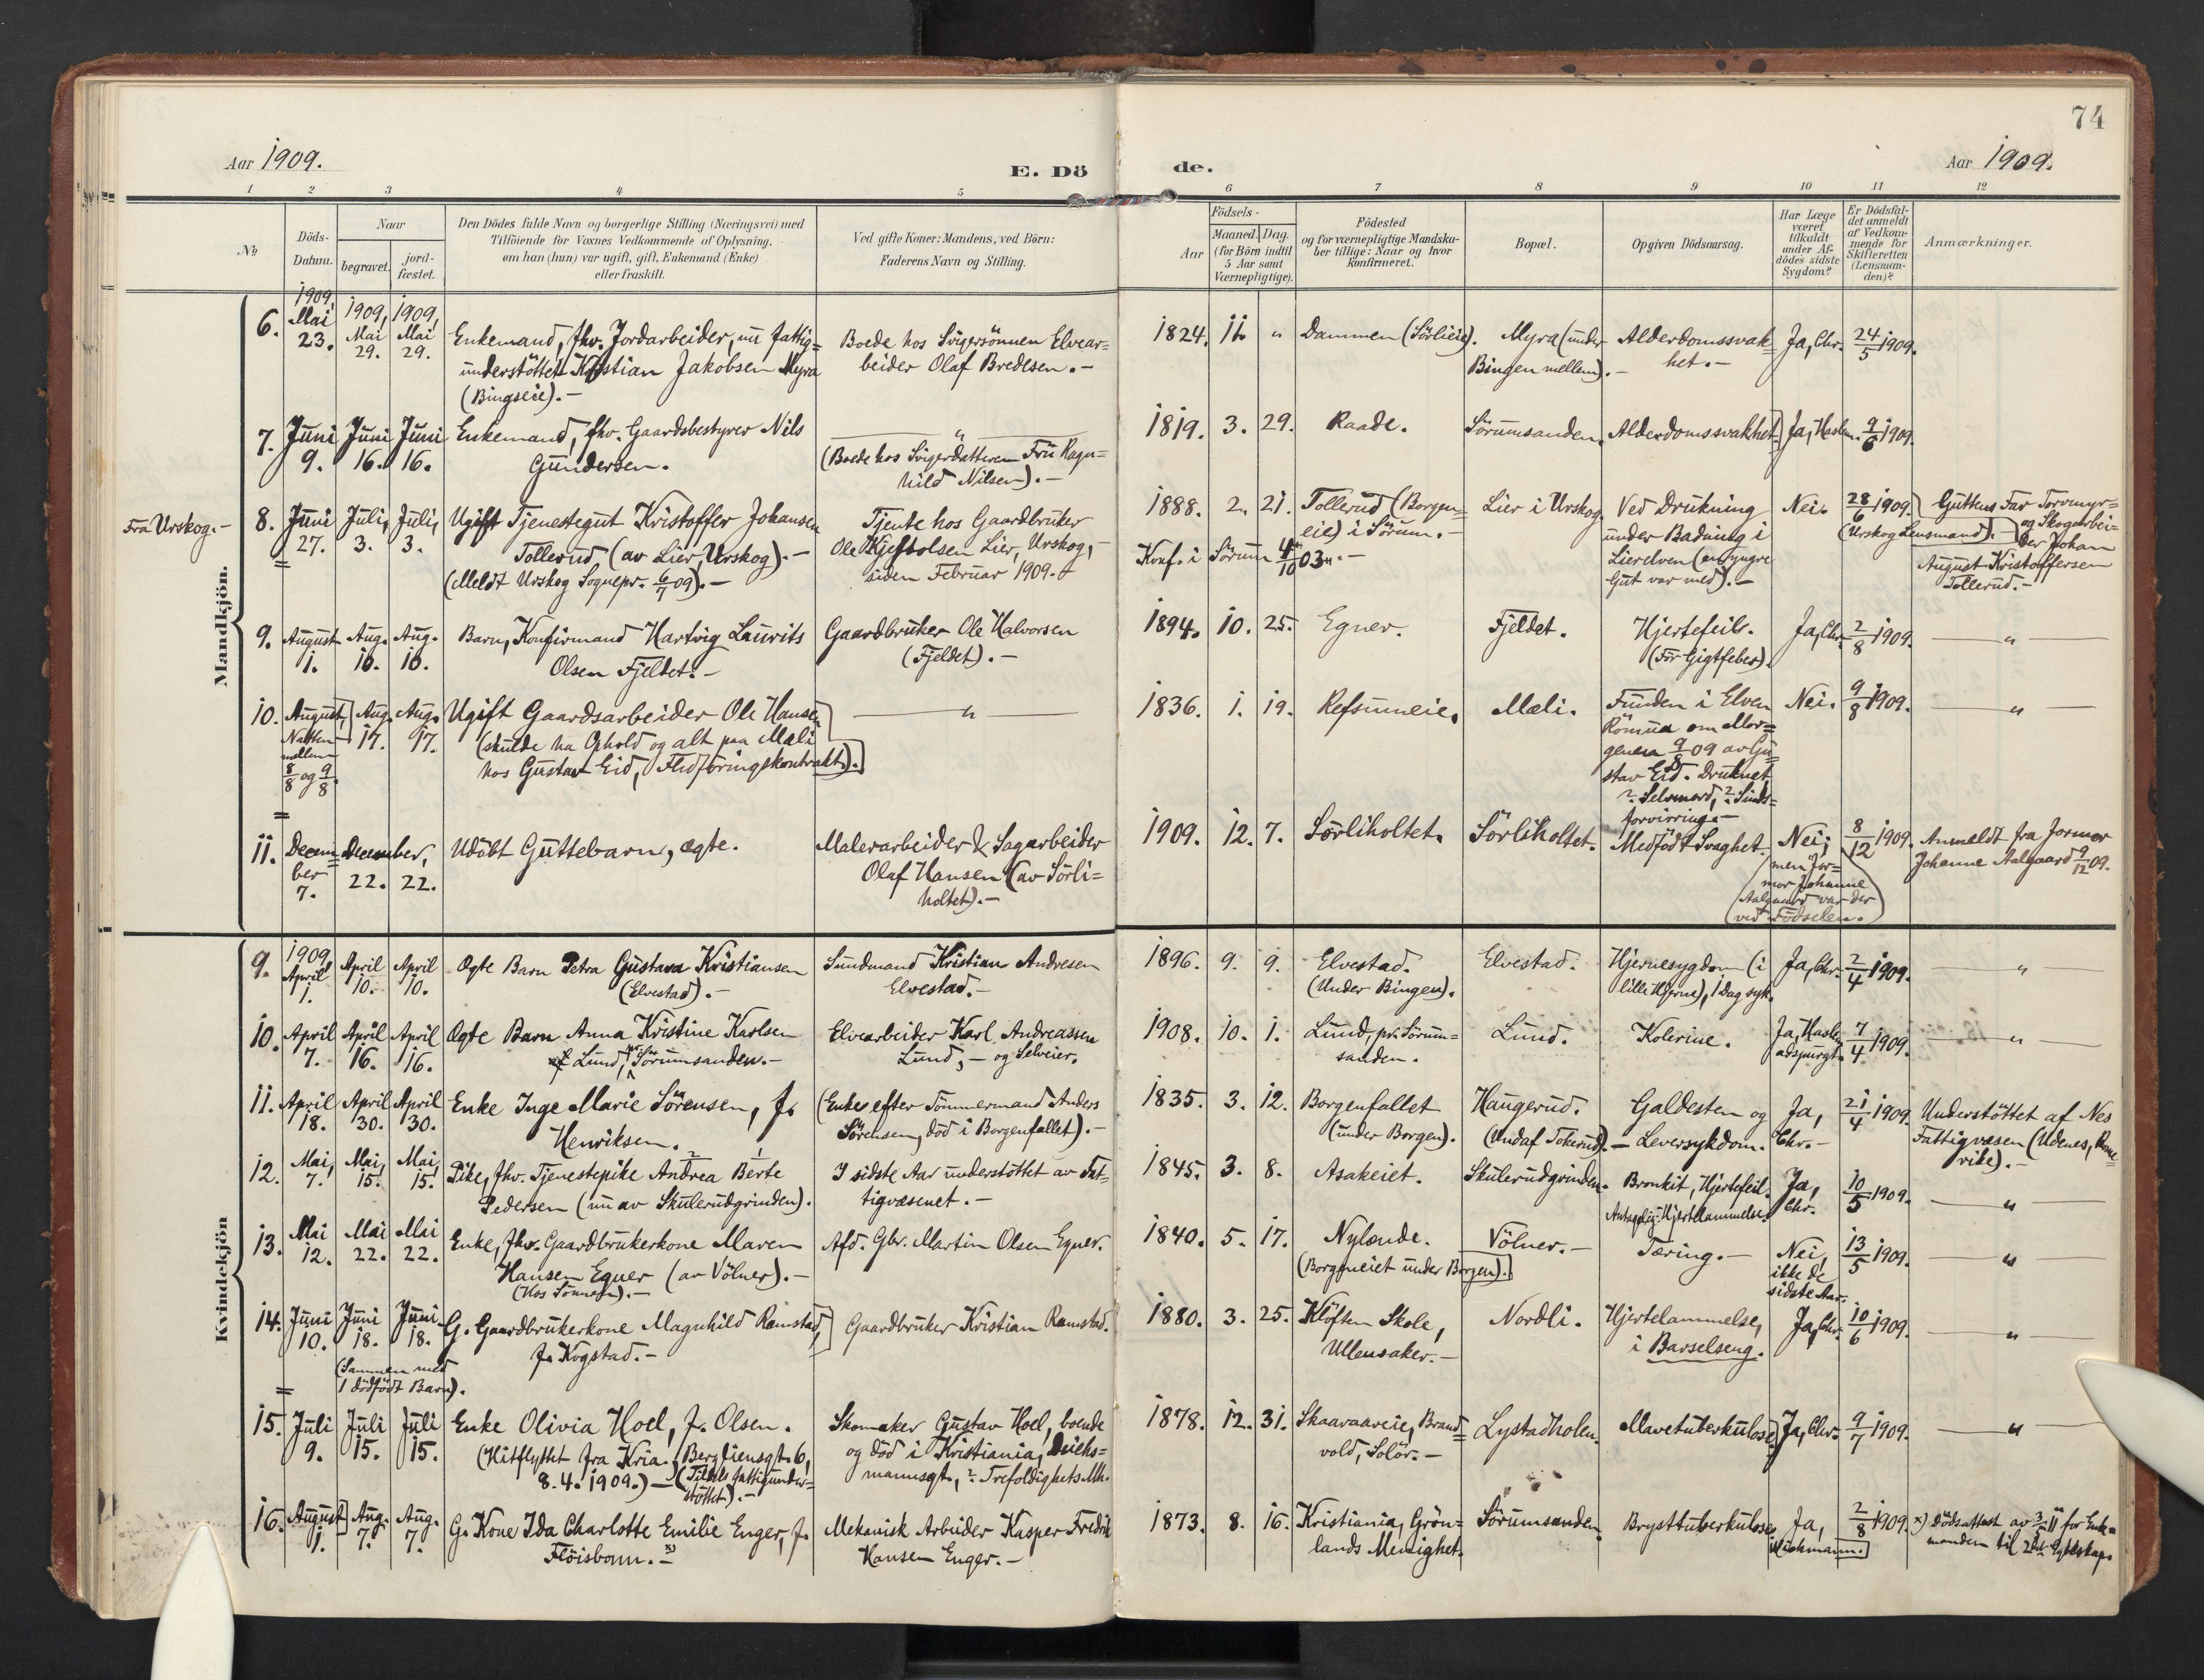 74
Aar 1909.
E. Dö
de.
Aar 1909.
1 2 3 4 5 6 7 8 9 10 11 12
No
Döds-
Datum.
Naar
begravet.
jord-
fæstet.
Den Dödes fulde Navn og borgerlige Stilling (Næringsvei) med
Tilföiende for Voxnes Vedkommende af Oplysning.
om han (hun) var ugift, gift, Enkemand (Enke)
eller fraskilt.
Ved gifte Koner: Mandens, ved Börn:
Faderens Navn og Stilling.
Födsels-
Aar
Maaned. Dag.
(for Börn indtil
5 Aar samt
Værnepligtige).
Födested
og for værnepligtige Mandska-
ber tillige: Naar og hvor
konfirmeret.
Bopæl.
Opgiven Dödsaarsag.
Har Læge
været
tilkaldt
under Af-
dödes sidste
Sygdom?
Er Dödsfal-
det anmeldt
af Vedkom-
mende for
Skifteretten
(Lensman-
den)?
Anmærkninger.
Mandkjön.
6.
1909,
Mai
23.
1909,
Mai
29.
1909,
Mai
29.
Enkemand, fhv. Jordarbeider, nu fattig=
understöttet Kristian Jakobsen Myra
(Bingseie).-
Boede hos Svigersönnen Elvear=
beider Olaf Bredesen.-
1824. 11. "
Dammen (Sörlieie).
Myra (under
Bingen mellem).-
Alderdomssvak=
het.-
Ja, Chr.
24/5 1909.
7.
Juni
9.
Juni
16.
Juni
16.
Enkemand, fhv. Gaardsbestyrer Nils
Gundersen.
"
(Boede hos Svigerdatteren Fru Ragn=
hild Nilsen).-
1819. 3. 29.
Raade.
Sörumsanden.
Alderdomssvakhet.
Ja, Haslum.
9/6 1909.
Fra Urskog.-
8.
Juni
27.
Juli,
3.
Juli,
3.
Ugift Tjenestegut Kristoffer Johansen
Tollerud (av Lier, Urskog).-
(Meldt Urskog Sognepr. 6/7 09).-
Tjente hos Gaardbruker
Ole Kjeftolsen Lier, Urskog,-
siden Februar 1909.-
1888. 2. 21.
Tollerud (Borgen=
eie) i Sörum.-
Konf. i Sörum 4/10 03.-
Lier i Urskog.
Ved Drukning
under Badning i
Lierelven (en yngre
Gut var med).-
Nei.
28/6 1909.
(Urskog Lensmand).
Guttens Far Torvmyr=
og Skogarbei=
der Johan
August Kristoffersen
Tollerud.-
9.
August
1.
Aug.
10.
Aug.
10.
Barn, Konfirmand Hartvig Laurits
Olsen Fjeldet.-
Gaardbruker Ole Halvorsen
(Fjeldet).-
1894. 10. 25.
Egner.
Fjeldet.
Hjertefeil.
(Før Gigtfeber).
Ja, Chr.
2/8 1909.
"
10.
August,
Natten
mellem
8/8 og 9/8.
Aug.
17.
Aug.
17.
Ugift Gaardsarbeider Ole Hansen
(skulde ha Ophold og alt paa Mæli
hos Gustav Eid, Flodföringskontrakt).
"
1836. 1. 19.
Refsumeie.
Mæli.
Funden i Elven
Römua om Mor=
genen 9/8 09 av Gu=
stav Eid. Druknet
? Selvmord, ? Sinds=
forvirring.-
Nei.
9/8 1909.
"
11.
Decem=
ber
7.
December,
22. 22.
Udöbt Guttebarn, ægte.
Malerarbeider & Sagarbeider
Olaf Hansen (av Sörli=
holtet).-
1909. 12. 7.
Sörliholtet.
Sörliholtet.
Medfödt Svaghet.
Nei;
men Jor=
mor Johanne
Aalgaard var der
ved Födselen.
8/12 1909.
Anmeldt fra Jormor
Johanne Aalgaard 9/12 09.
Kvindekjön
9.
1909,
April
1.
April
10.
April
10.
Ægte Barn Petra Gustava Kristiansen
(Elvestad).-
Sundmand Kristian Andresen
Elvestad.-
1896. 9. 9.
Elvestad.
(Under Bingen).
Elvestad.
Hjernesygdom (i
lille Hjerne), 1 Dag syk.
Ja, Chr.
2/4 1909.
"
10.
April
7.
April
16.
April
16.
Ægte Barn Anna Kristine Karlsen
Lund, pr. Sörumsanden.-
Elvearbeider Karl Andreassen
Lund,- og Selveier.
1908. 10. 1.
Lund, pr. Sörum=
sanden.
Lund.
Kolerine.
Ja, Haslum
adspurgt.
7/4 1909.
"
11.
April
18.
April
30.
April
30.
Enke Inge Marie Sörensen, f.
Henriksen.
(Enke efter Tömmermand Anders
Sörensen, död i Borgenfallet).-
1835. 3. 12.
Borgenfallet
(under Borgen).
Haugerud.
(Undaf Tokerud).-
Galdesten og
Leversykdom.
Ja,
Chr.-
21/4 1909.
Understöttet af Nes
Fattigvæsen (Udenes, Rome=
rike).-
12.
Mai,
7.
Mai,
15.
Mai,
15.
Pike, fhv. Tjenestepike Andrea Berte
Pedersen (nu av Skulerudgrinden).
I sidste Aar understöttet av Fat=
tigvæsenet.-
1845. 3. 8.
Asakeiet.
Skulerudgrinden.
Bronkit, Hjertefeil.
Antagelig: Hjertelammelse.
Ja,
Chr.
10/5 1909.
"
13.
Mai
12.
Mai
22.
Mai
22.
Enke, fhv. Gaardbrukerkone Maren
Hansen Egner (av Völner).-
(Hos Sönnen).-
Afd. Gbr. Martin Olsen Egner.
1840. 5. 17.
Nylænde.
(Borgeneiet under Borgen).
Völner.-
Tæring.-
Nei,
ikke de
sidste Aar.
13/5 1909.
"
14.
Juni
10.
Juni
18.
Juni
18.
(Sammen med
1 dödfödt Barn).
G. Gaardbrukerkone Magnhild Ramstad,
f. Kogstad.-
Gaardbruker Kristian Ramstad.
1880. 3. 25.
Klöften Skole,
Ullensaker.-
Nordli.
Hjertelammelse,
i Barselseng.
Ja, Chr.
10/6 1909.
"
15.
Juli
9.
Juli
15.
Juli
15.
Enke Olivia Hoel, f. Olsen.
(Hitflyttet fra Kria. Bergliensgt. 6,
8.4.1909.)- (Tildels fattigunder=
stöttet).-
Skomaker Gustav Hoel, boende
og död i Kristiania, Deichs=
mannsgt., ? Trefoldighets Mh.
1878. 12. 31.
Skaaraaveie, Brand=
vold, Solör.-
Lystadholen.
Mavetuberkulose.
Ja, Chr.
9/7 1909.
"
16.
August
1.
Aug.
7.
Aug.
7.
G. Kone Ida Charlotte Emilie Enger, f.
Flöisbonn.- x)
Mekanisk Arbeider Kasper Fredrik
Hansen Enger.-
1873. 8. 16.
Kristiania, Grön=
lands Menighet.
Sörumsanden.
Brysttuberkulose.
Ja,
2/8 1909.
x) Dödsattest av 3/5 11 for Enke=
manden til 2det Egteskap.